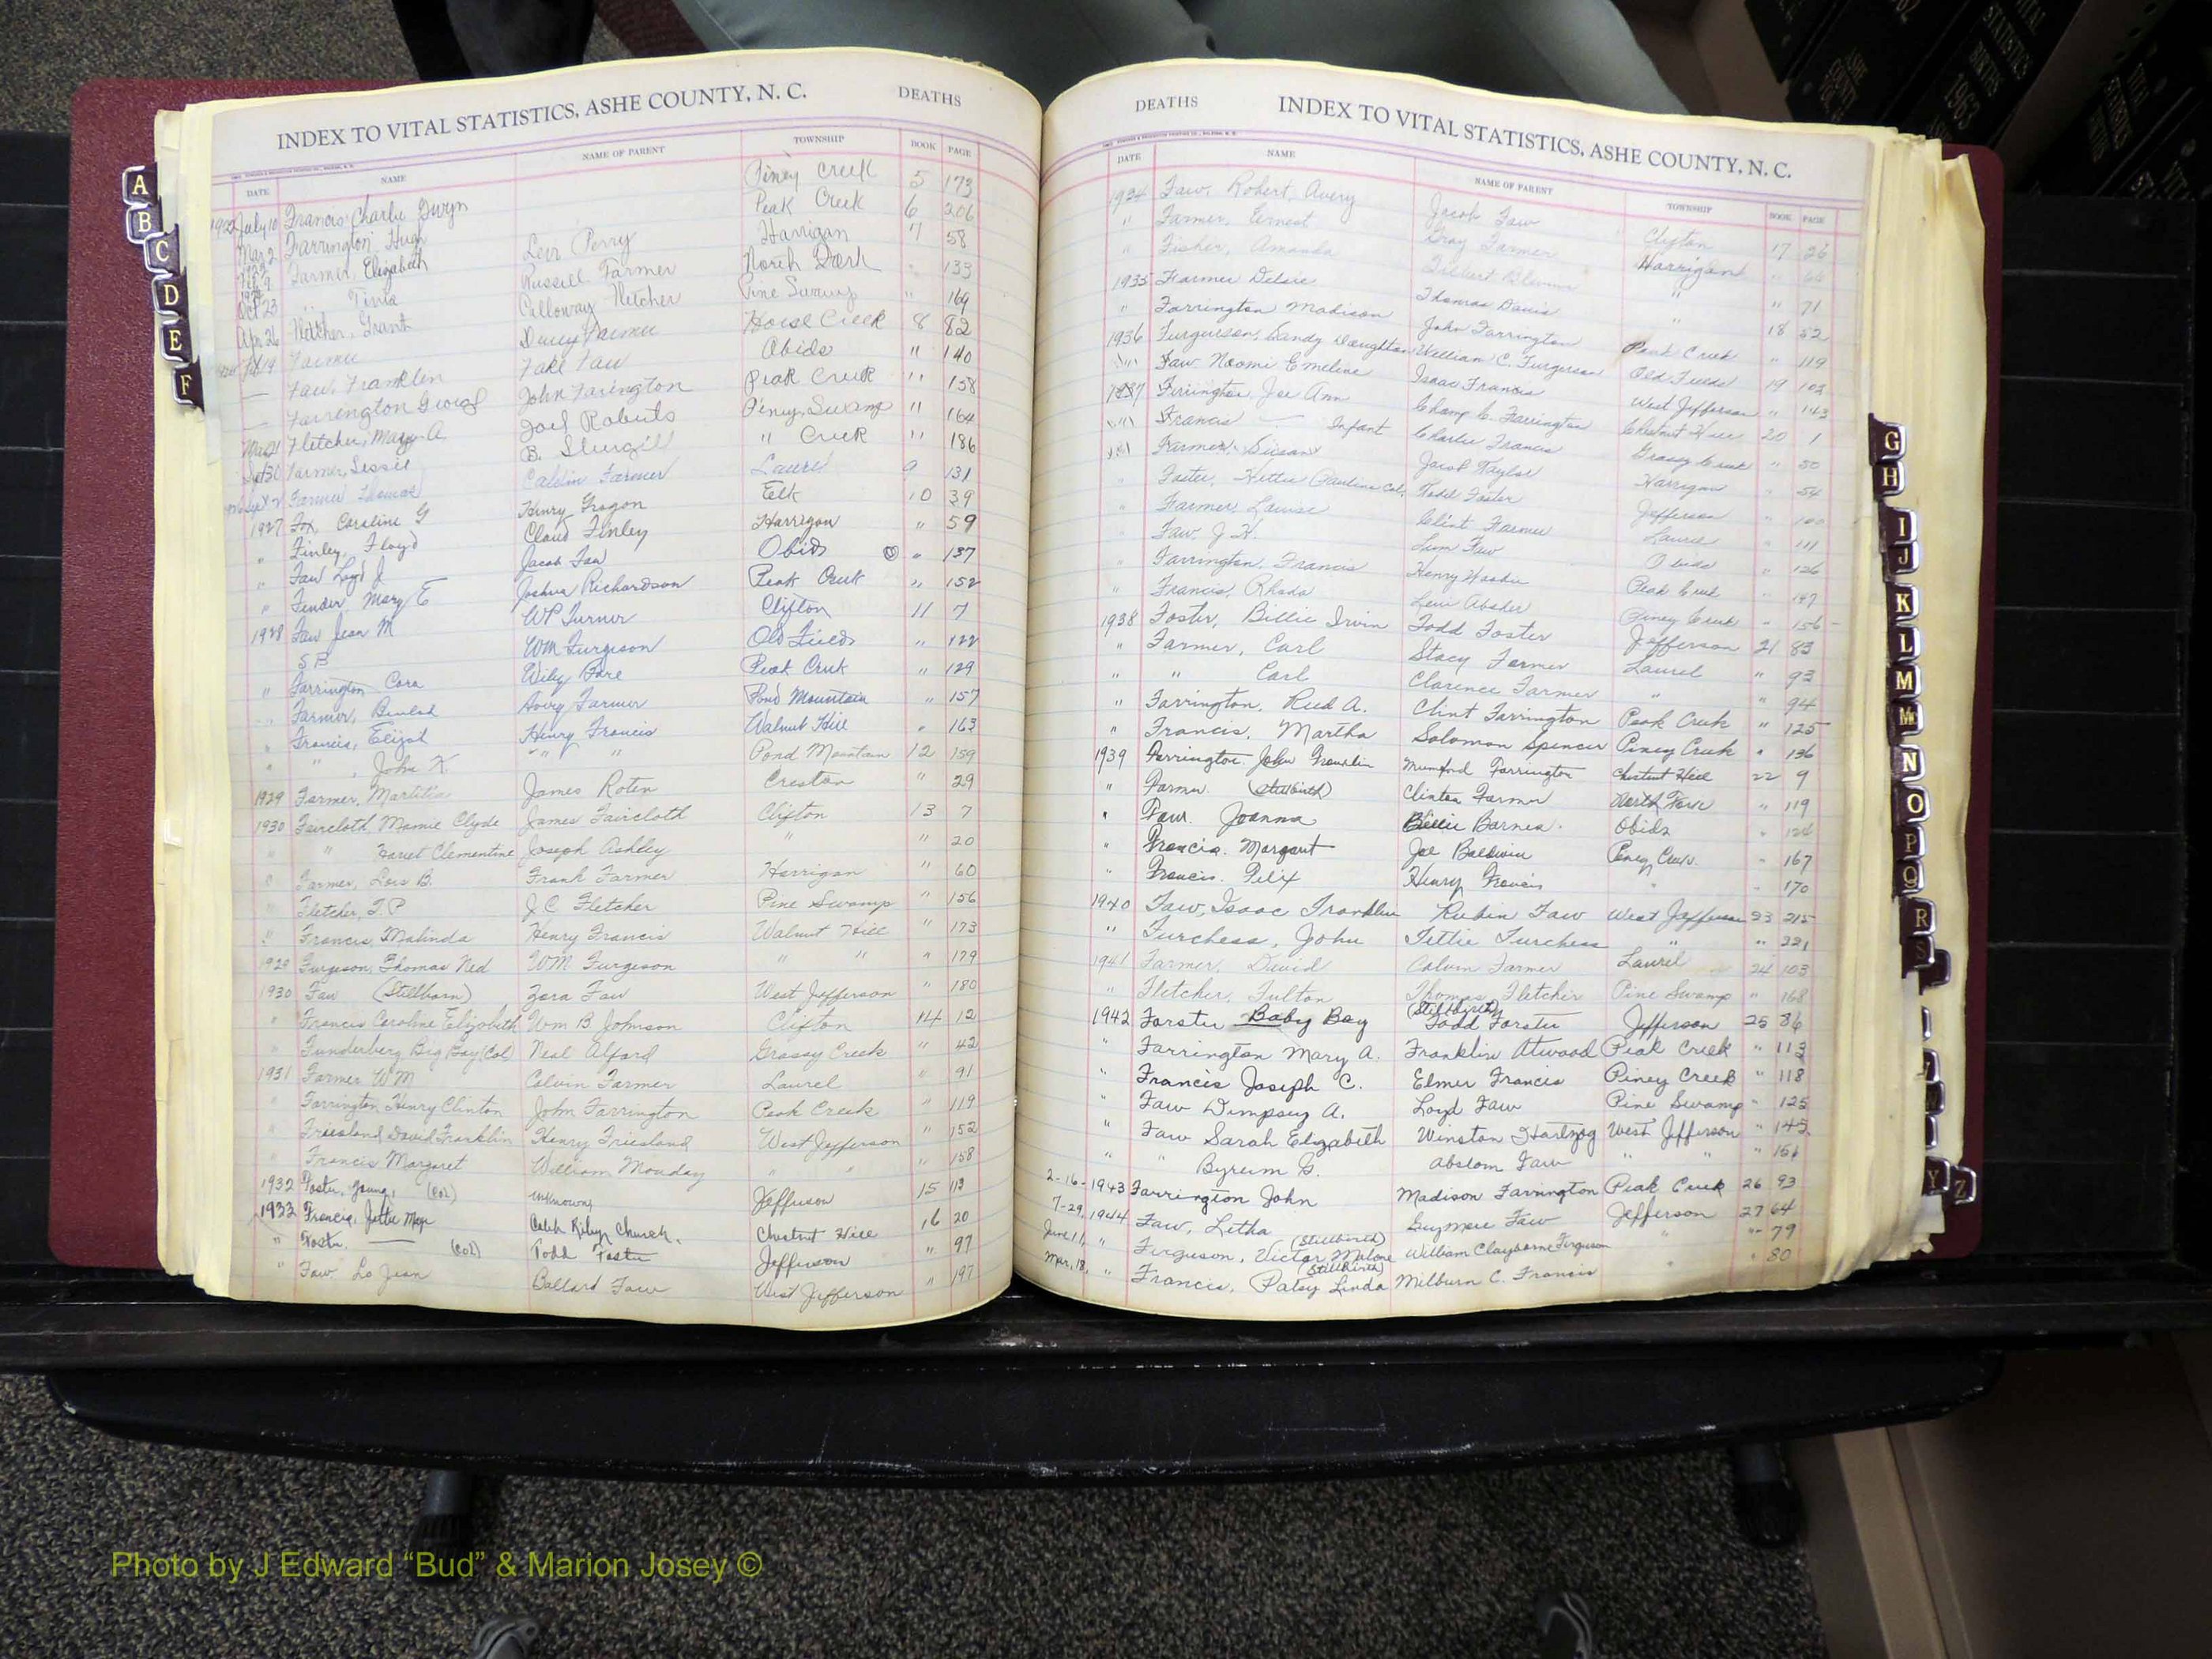 INDEX TO VITAL STATISTICS, ASHE COUNTY, N. C. DEATHS
DATE NAME NAME OF PARENT TOWNSHIP BOOK PAGE
July 10 Francis Charlie Gwyn Piney Creek 5 173
Mar 2 Farrington Hugh Peak Creek 6 206
Farmer, Elizabeth Levi Perry Harrigan 7 58
Oct 23 " Tinta Russell Farmer North 133
Apr 26 Fletcher, Grant Calloway Fletcher Pine Swamp " 169
Farmer Horse Creek 8 82
Faw, Franklin Faw Obids " 140
Farrington George John Farington Peak Creek " 158
Fletcher, Mary A. Joel Roberts Piney, Swamp " 164
Farmer, B. Sturgil " Creek " 186
Farmer Thomas Calvin Farmer Laurel 9 131
1927 Fox, Caroline G Henry Grogon Elk 10 39
" Finley, Floyd Cloud Finley Harrigan " 59
" Faw Loyd J Jacob Faw Obids " 137
" Fender Mary E Joshua Richardson Peak Creek " 152
1928 Faw Jean M WP Turner Clifton 11 7
SB WM Furgison Old Fields " 122
" Farrington Cora Wiley Pore Peak Creek " 129
Farmer, Beulah Avery Farmer Pond Mountain " 157
" Francis, Elizah Henry Francis Walnut Hill " 163
" " , John K. " " Pond Mountain 12 159
1929 Farmer, Martitia James Roten Creston " 29
1930 Faircloth, Mamie Clyde James Faircloth Clifton 13 7
" " Hariet Clementine Joseph Ashley " " 20
" Farmer, Lois B. Frank Farmer Harrigan " 60
" Fletcher, T.P J.C Fletcher Pine Swamp " 156
" Francis, Malinda Henry Francis Walnut Hill " 173
1929 Furgeson, Thomas Ned WM Furgeson " " " 179
1930 Faw (Stillborn) Zora Faw West Jefferson " 180
" Francis Caroline Elizabeth Wm B. Johnson Clifton 14 12
" Funderberg Big Boy (Col) Neal Alford Grassy Creek " 42
1931 Farmer WM Calvin Farmer Laurel " 91
" Farrington Henry Clinton John Farrington Peak Creek " 119
" Friesland David Franklin Henry Friesland West Jefferson " 152
" Francis Margaret William Monday " " " 158
1932 Foster, Young, (Col) unknown Jefferson 15 113
1933 Francis, Jettie Mae Caleb Riley Church. Chestnut Hill 16 20
" Foster. (Col) Todd Foster Jefferson " 97
" Faw Lo Jean Ballard Faw West Jefferson " 197
DEATHS INDEX TO VITAL STATISTICS, ASHE COUNTY, N. C.
DATE NAME NAME OF PARENT TOWNSHIP BOOK PAGE
1934 Faw, Robert, Avery Jacob Faw Clifton 17 26
" Farmer, Ernest Gray Farmer Harrigan " 66
" Fisher, Amanda Blevins " " 71
1935 Farmer Delsie Thomas Davis " 18 52
" Farrington Madison John Farrington Peak Creek " 119
1936 Furguson, Dandy Doughton William C. Furgerson Old Fields 19 102
Faw Naomi Emeline Isaac Francis West Jefferson " 143
1937 Firrington, Joe Ann Champ C. Farrington Chestnut Hill 20 1
Francis Infant Charlie Francis Grassy Creek " 50
Farmer, Susan Jacob Taylor Harrigan " 54
" Foster, Hettie Paulina Col. Todd Foster Jefferson " 100
" Farmer, Louise Clint Farmer Laurel " 111
" Faw J. H. Lum Faw Obids " 126
" Farrington, Francis Henry Peak Creek " 147
" Francis, Rhoda Levi Absher Piney Creek " 156
1938 Foster, Billie Irvin Todd Foster Jefferson 21 83
" Farmer, Carl Stacy Farmer Laurel " 93
" " Carl Clarence Farmer " " 94
" Farrington, Rud A. Clint Farrington Peak Creek " 125
" Francis, Martha Solomon Spencer Piney Creek " 136
1939 Farrington John Franklin Mumford Farrington Chestnut Hill 22 9
" Farmer. (Stillbirth) Clinton Farmer North Fork " 119
" Faw. Joanna Billie Barnes. Obids " 124
" Francis. Margaret Joe Baldwin Piney Creek. " 167
" Francis. Felix Henry Francis " " 170
1940 Faw, Isaac Franklin Rubin Faw West Jefferson 23 215
" Furchess, John Tettie Furchess " " 221
1941 Farmer, David Calvin Farmer Laurel 24 103
" Fletcher, Fulton Thomas Fletcher Pine Swamp " 168
1942 Forster Baby Boy (Stillbirth) Todd Forster Jefferson 25 86
" Farrington Mary A. Franklin Atwood Peak Creek " 113
" Francis Joseph C. Elmer Francis Piney Creek " 118
" Faw Dempsey A. Loyd Faw Pine Swamp " 125
" Faw Sarah Elizabeth Winston Hartzog West Jefferson " 142
" " Byreum G. Abslom Faw " " " 161
2-16-1943 Farrington John Madison Farrington Peak Creek 26 93
7-29-1944 Faw, Letha Guymore Faw Jefferson 27 64
June 11, " Ferguson, Victor Malone (Stillbirth) William Clayborne Ferguson " " 79
Mar. 18, " Francis, Patsy Linda (Stillbirth) Milburn C. Francis " " 80
A
B
C
D
E
F
G
H
I
J
K
L
M
Mc
N
O
P
Q
R
S
Y
Z
VITAL STATISTICS BIRTHS 1963
Photo by J Edward “Bud” & Marion Josey ©